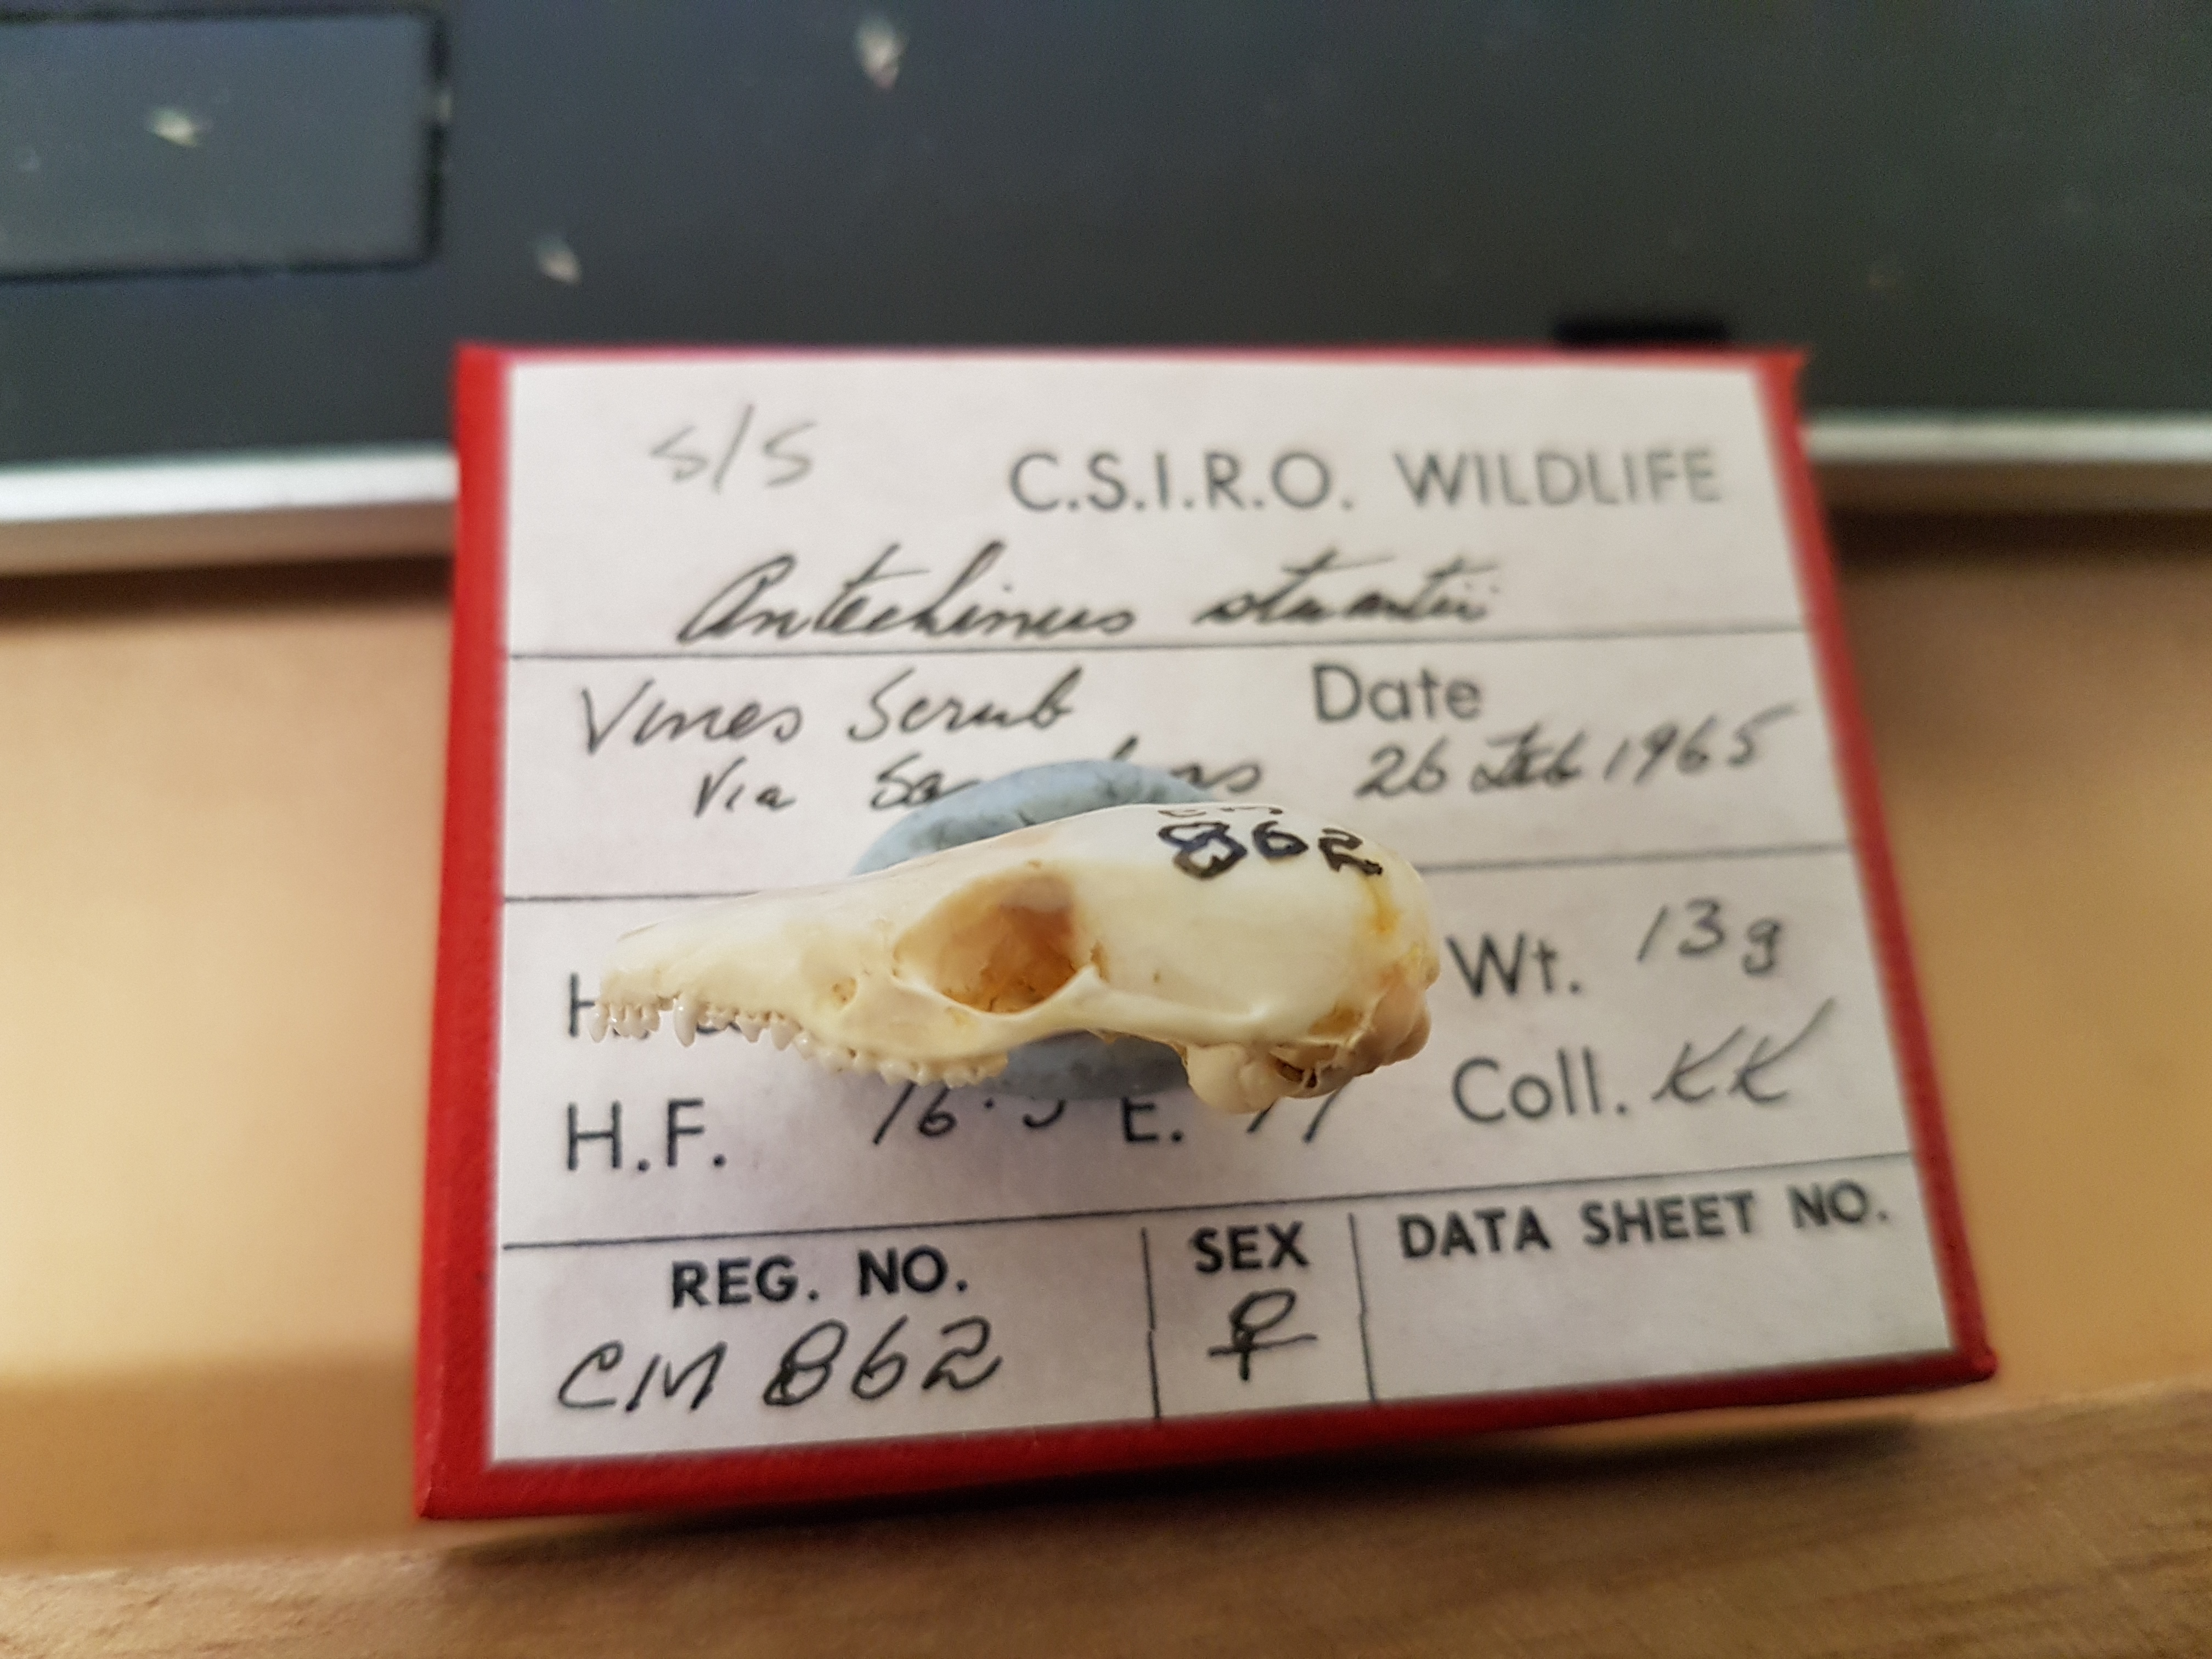 S/S
C.S.I.R.O. WILDLIFE
Antechinus stuartii
Vines Scrub
Date
Via
26 Feb 1965
862
Wt. 13g
H.F. 16.5 E.
Coll. KK
REG. NO.
SEX
DATA SHEET NO.
CM 862
♀